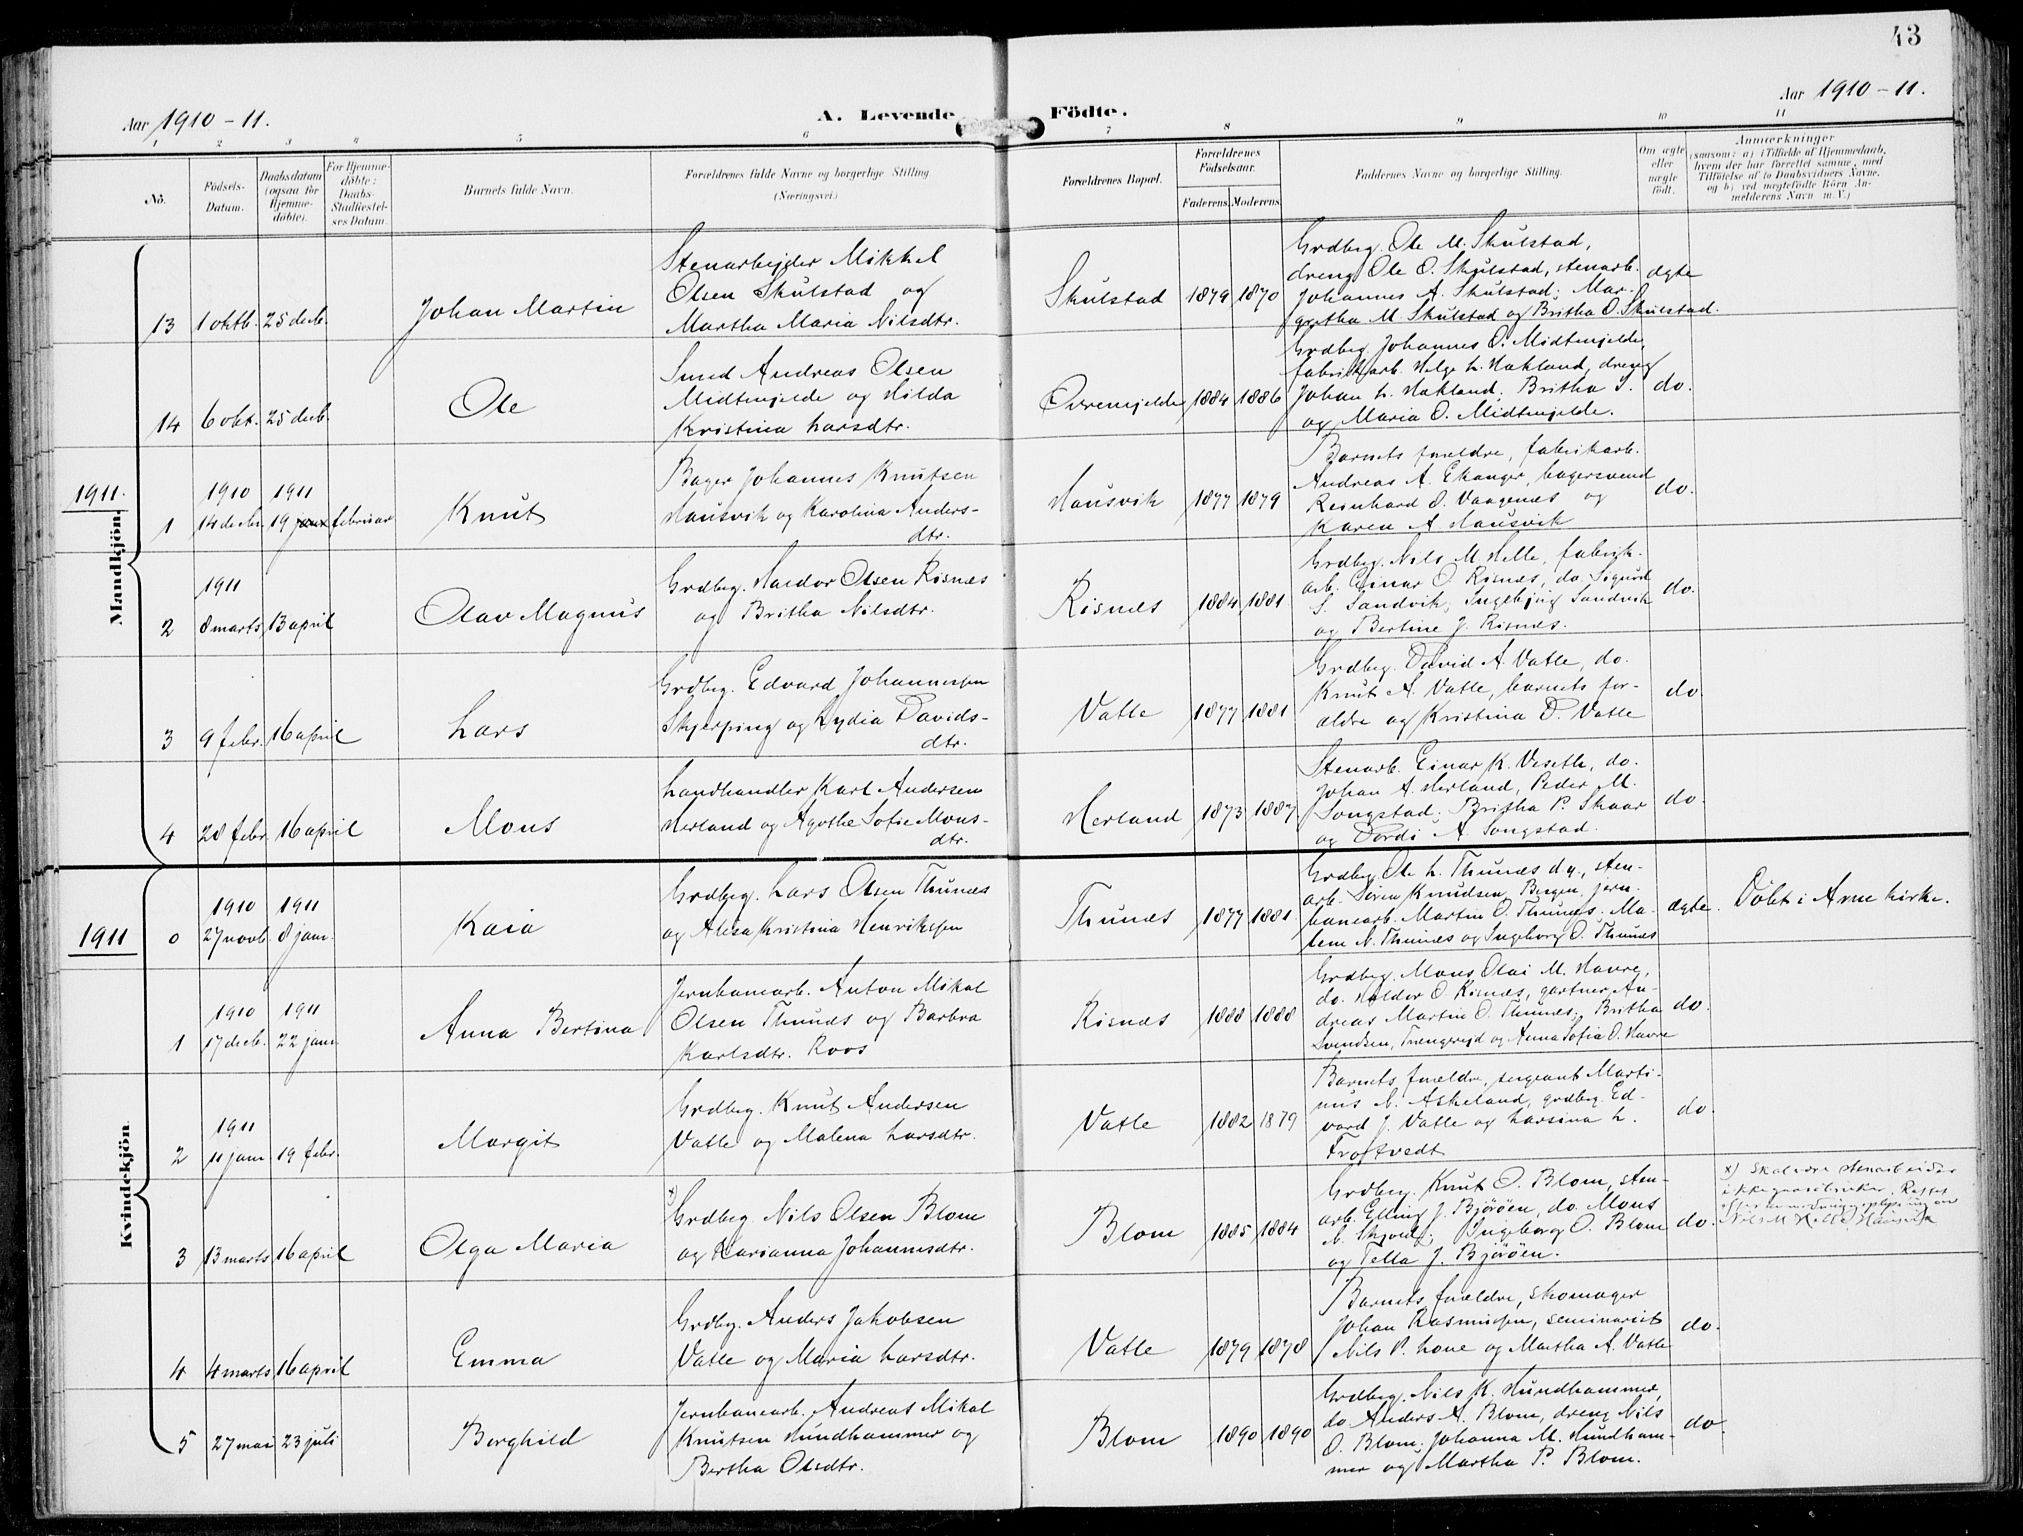 43
Aar 1910-11.
A. Levende Födte.
Aar 1910-11.
1 2 3 4 5 6 7 8 9 10 11
No.
Födsels-Datum.
Daabsdatum (ogsaa for Hjemmedöbte).
For Hjemmedöbte: Daabs-Stadfæstelses Datum.
Barnets fulde Navn.
Forældrenes fulde Navne og borgerlige Stilling
(Næringsvei)
Forældrenes Bopæl.
Forældrenes Födselsaar.
Faderens. Moderens.
Faddernes Navne og borgerlige Stilling.
Om ægte eller uægte födt.
Anmærkninger
(saasom: a) i Tilfælde af Hjemmedaab,
hvem der har forrettet samme, med
Tilföielse af to Daabsvidners Navne,
og b) ved uægtefödte Börn Anmelderens Navn m.V.)
Mandkjön.
13 1 oktb. 25 decb.
Johan Martin
Stenarbejder Mikkel
Olsen Skulstad og
Martha Maria Nilsdtr.
Skulstad 1879 1870
Grdbrg. Ole M. Skulstad,
dreng Ole O. Skulstad, stenarb.
Johannes A. Skulstad; Mar-
gretha M. Skulstad og Britha O. Skulstad.
ægte
14 6 okt. 25 decb.
Ole
Smed Andreas Olsen
Midtenjelde og Hilda
Kristina Larsdtr.
Øvrenjelde 1884 1886
Grdbrg. Johannes O. Midtenjelde,
fabrikarb. Helge L. Hakland, dreng
Johan L. Hakland; Britha
og Maria O. Midtenjelde.
do.
1911.
1 1910 14 decbr. 1911 19 janr februar
Knut
Bager Johannes Knutsen
Hausvik og Karolina Anders-
dtr.
Hausvik 1877 1879
Barnets forældre, fabrikarb.
Andreas A. Ekanger, bagersvend
Reinhard O. Vaagenes og
Karen A Hausvik
do.
2 1911 8 marts 13 april
Olav Magnus
Grdbrg. Haldor Olsen Risnes
og Britha Nilsdtr.
Risnæs 1884 1881
Grdbrg. Nils M. Helle, fabrik-
arb. Einar O. Risnæs, do. Sigurd
S. Sandvik; Ingebjørg Sandvik
og Bertine J. Risnæs.
do.
3 9 febr. 16 april
Lars
Grdbrg. Edvard Johannessen
Skjerping og Lydia Davids-
dtr.
Vatle 1877 1881
Grdbrg. David A. Vatle, do.
Knut A. Vatle, barnets for-
ældre og Kristina D. Vatle
do
4 28 febr. 16 april
Mons
Landhandler Karl Andersen
Herland og Agathe Sofie Mons-
dtr.
Herland 1873 1887
Stenarb. Einar K. Veseth, do.
Johan A. Herland, Peder M.
Songstad; Britha P. Skaar
og Dordi A Songstad.
do.
1911
Kvindekjön.
0 1910 27 novb. 1911 8 jan.
Kaia
Grdbrg. Lars Olsen Thunæs
og Alexa Kristina Henriksen
Thunæs 1877 1881
Grdbrg. Ole L. Thunæs d.y., sten-
arb. Søren Knudsen, Bergen, jern-
banearb. Martin O. Thunæs; Ma-
lene N. Thunæs og Ingeborg O. Thunæs
ægte.
Döbt i Arne kirke.
1 1910 17 decb. 1911 22 jan.
Anna Bertina
Jernbanearb. Anton Mikal
Olsen Thunæs og Barbra
Karlsdtr. Roos
Risnæs 1888 1888
Grdbrg. Mons Olai M. Havre,
do. Haldor O. Risnæs, gartner An-
dreas Martin O. Thunæs; Britha
Svendsen, Trengereid og Anna Sofia O. Havre
do.
2 1911 11 jan. 19 febr.
Margit
Grdbrg. Knut Andersen
Vatle og Malena Larsdtr.
Vatle 1882 1879
Barnets forældre, sergeant Marti-
nus N. Askeland, grdbrg. Ed-
vard J. Vatle og Larsina L.
Froftvedt
do.
3 13 marts 16 april
Olga Maria
x) Grdbrg. Nils Olsen Blom
og Marianna Johannesdtr.
Blom 1885 1884
Grdbrg. Knut O. Blom, sten-
arb. Elling J. Bjørøen, do. Mons
N. ; Ingeborg O. Blom
og Tella J. Bjørøen.
do.
x) Skal være stenarbeider
ikke gaardbruker. Rettet
efter
Nils M Helle Hausvik
4 4 marts 16 april
Emma
Grdbrg. Anders Jakobsen
Vatle og Maria Larsdtr.
Vatle 1879 1878
Barnets forældre, skomager
Johan Rasmussen, seminarist
Nils P. Lone og Martha A. Vatle
do.
5 27 mai 23 juli
Borghild
Jernbanearb. Andreas Mikal
Knutsen Hundhammer og
Bertha Olsdtr.
Blom 1890 1890
Grdbrg. Nils K. Hundhammer,
do. Anders A. Blom, dreng Nils
O. Blom; Johanna M. Hundham-
mer og Martha P. Blom.
do.